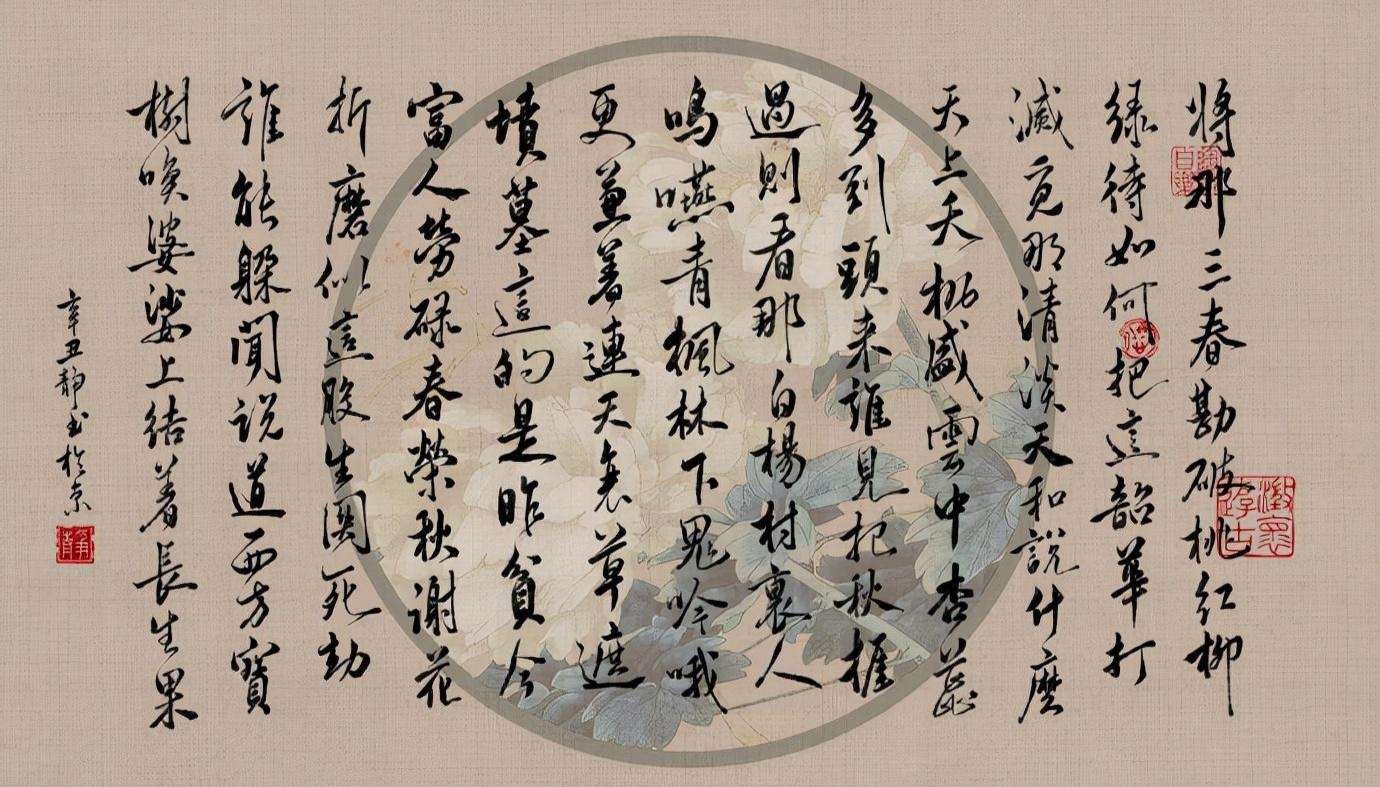 將那三春勘破桃红柳
绿待如何把這韶華打
滅覓那清淡天和說什麼
天上夭桃盛雲中杏蕊
多到頭来誰見把秋捱
過則看那白楊村裏人
鳴嚥青楓林下鬼吟哦
更兼着連天衰草遮
墳墓這的是昨貧今
富人勞碌春榮秋謝花
折磨似這般生関死劫
誰能躲聞説道西方寶
樹喚婆娑上结着長生果
辛丑靜书於京